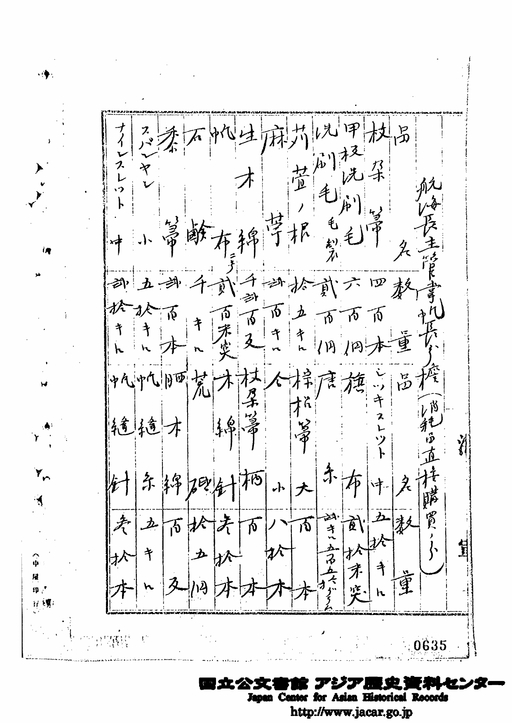 航海長主管掌帆長分擔(消耗品直接購買ノ分)
品名 数量 品名 数量
枝朶箒 四百本 レツキストツト 中 五拾キロ
甲板洗刷毛 六百個 旗布 貳拾米突
洗刷毛 毛製 貳百個 唐糸
苅萱ノ根 拾五キロ 棕梠箒 大 百本
麻苧 貳百キロ 仝 小 八拾本
生木綿 千貳百反 枝朶箒柄 百本
帆布 二号 貳百米突 木綿針 參拾本
石鹸 千キロ 荒砥 拾五個
黍箒 貳百本 晒木綿 百反
スパンヤン 小 五拾キロ 帆縫糸 五キロ
ナイレスレツト 中 貳拾キロ 帆縫針 參拾本
0635
国立公文書館 アジア歴史資料センター
Japan Center for Asian Historical Records
http://www.jacar.go.jp